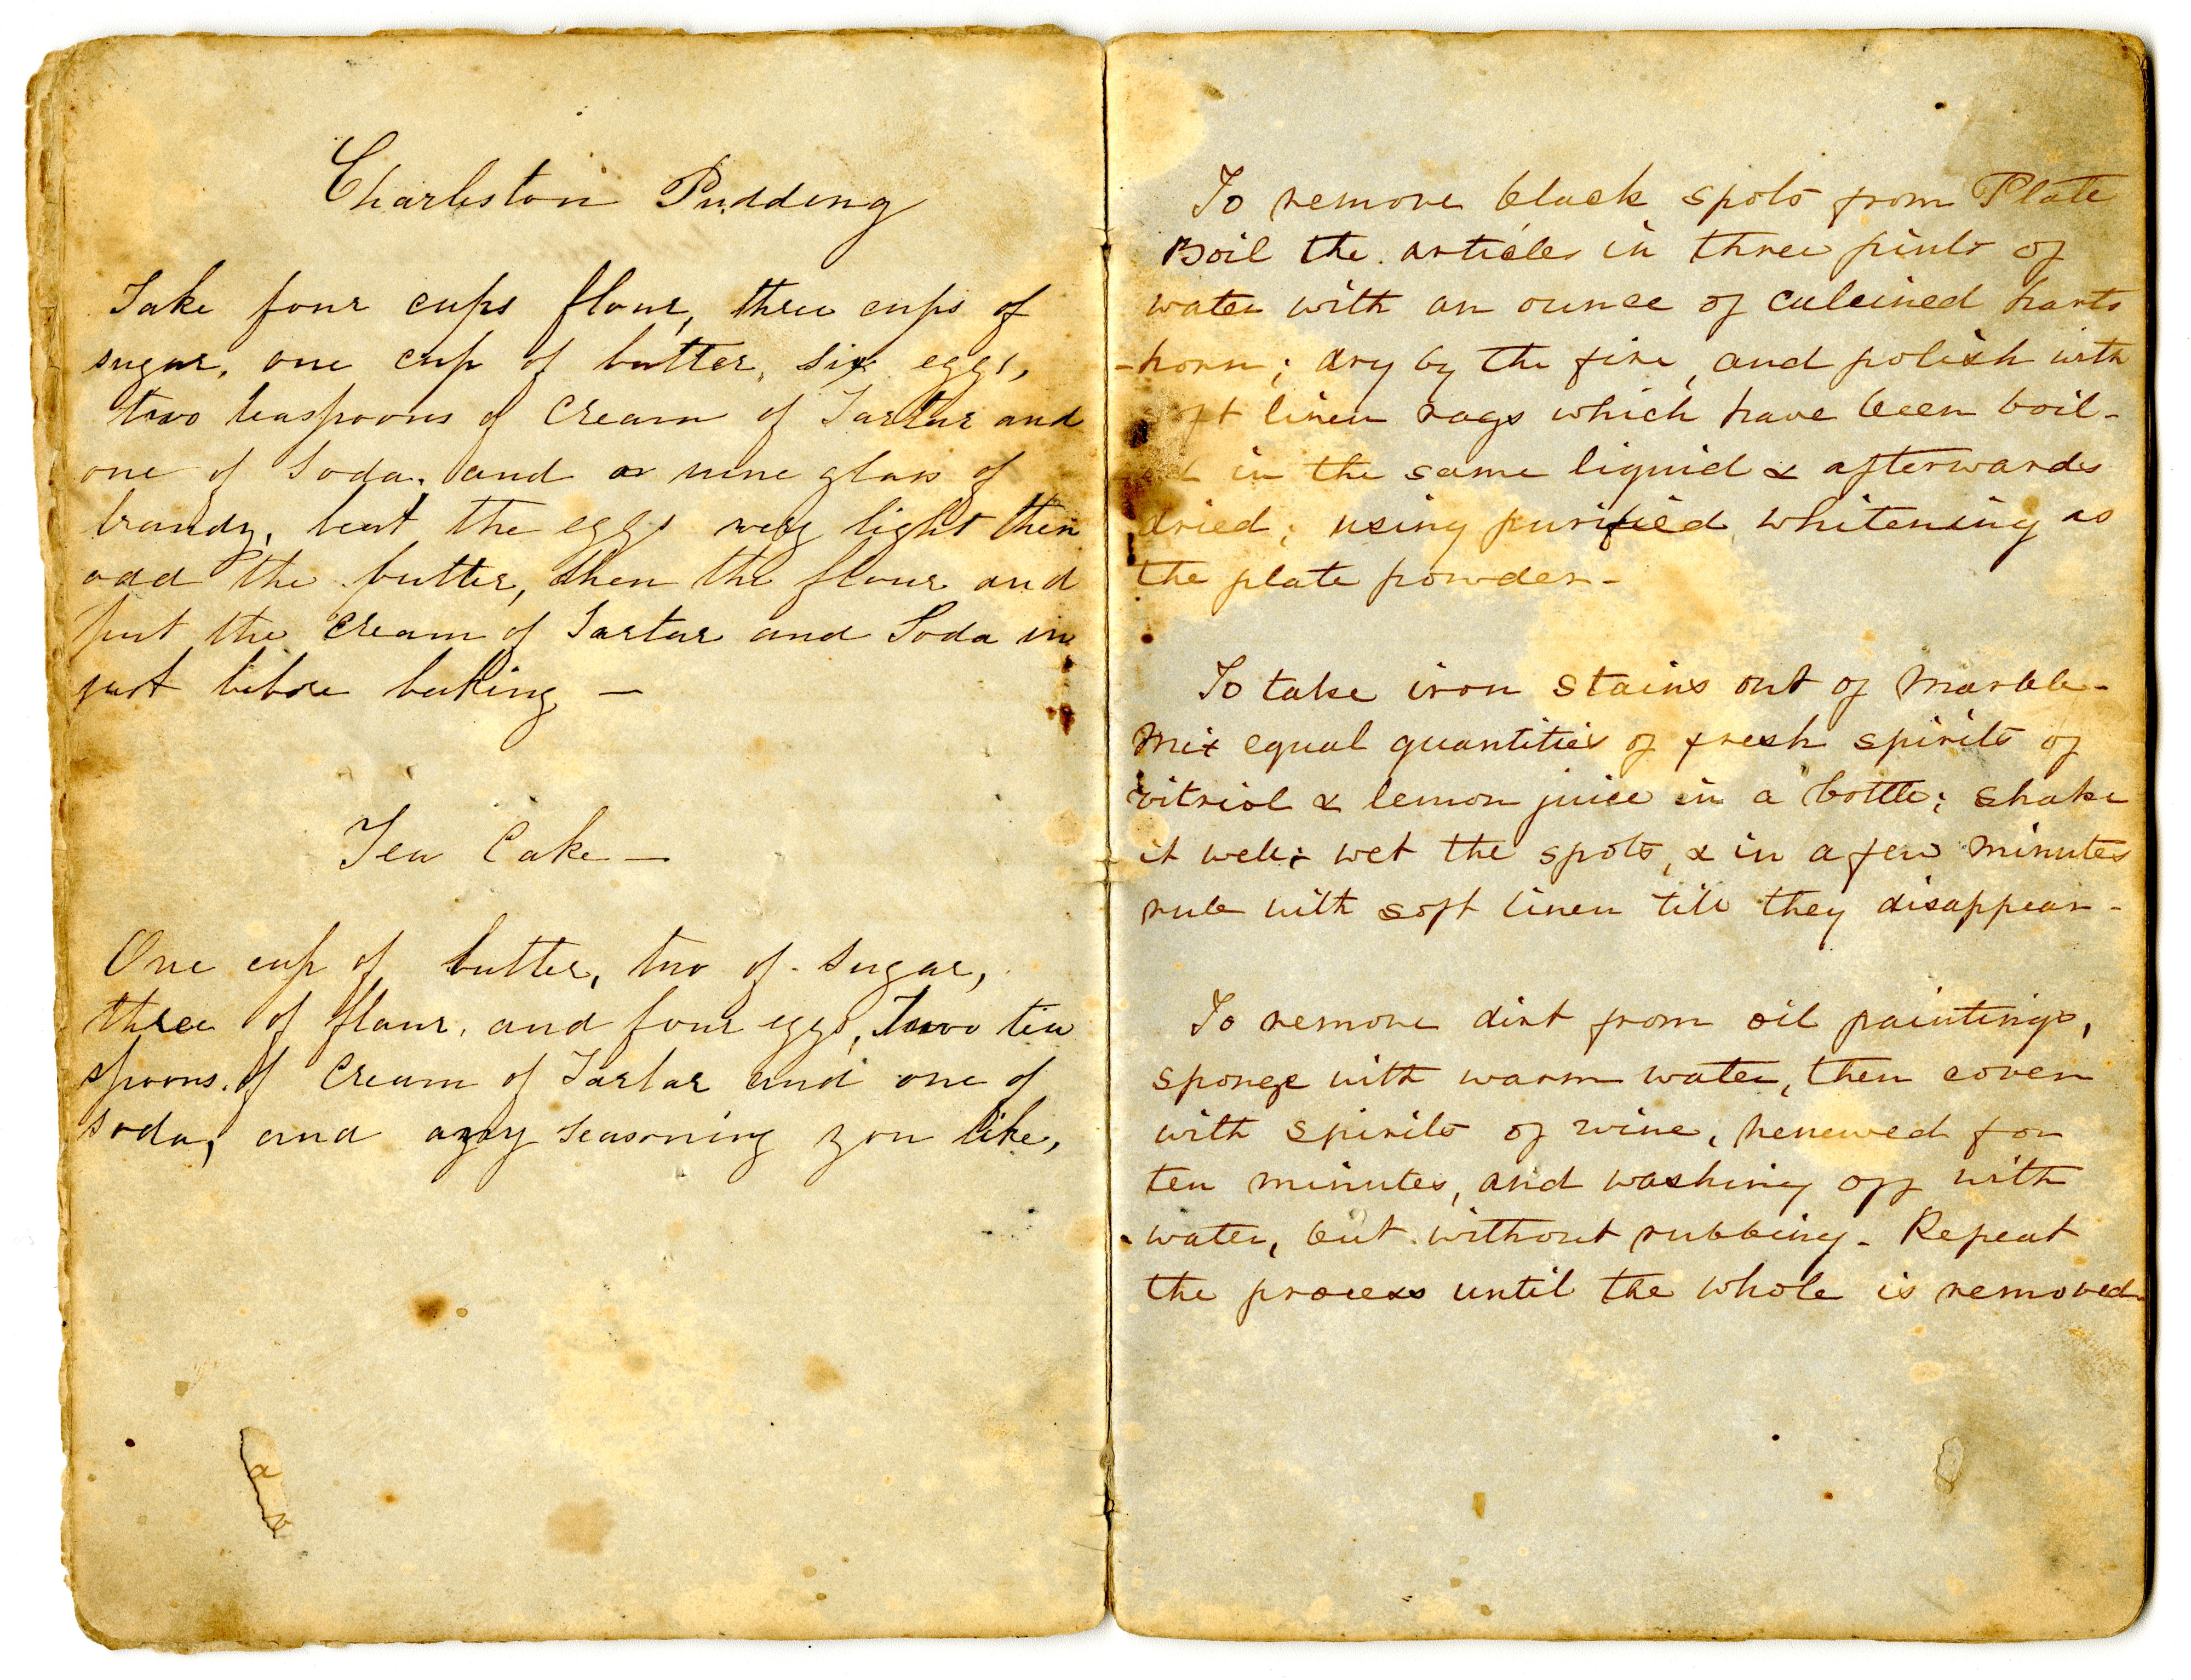 Charleston Pudding
Take four cups flour, three cups of
sugar, one cup of butter, six eggs,
two teaspoons of Cream of Tartar and
one of Soda. and a wine glass of
brandy, beat the eggs very light then
add the butter, then the flour and
put the Cream of Tartar and Soda in
just before baking —
Tea Cake —
One cup of butter, two of sugar,
three of flour, and four eggs, Two tea
spoons of Cream of Tartar and one of
soda, and any seasoning you like,
To remove black spots from Plate
Boil the articles in three pints of
water with an ounce of calcined harts
-horn; dry by the fire, and polish with
soft linen rags which have been boil-
ed in the same liquid & afterwards
dried; using purified whitening as
the plate powder -
To take iron stains out of Marble -
Mix equal quantities of fresh spirits of
vitriol & lemon juice in a bottle; shake
it well; wet the spots, & in a few minutes
rub with soft linen till they disappear -
To remove dirt from oil paintings,
sponge with warm water, then cover
with spirits of wine, renewed for
ten minutes, and washing off with
water, but without rubbing - Repeat
the process until the whole is removed.